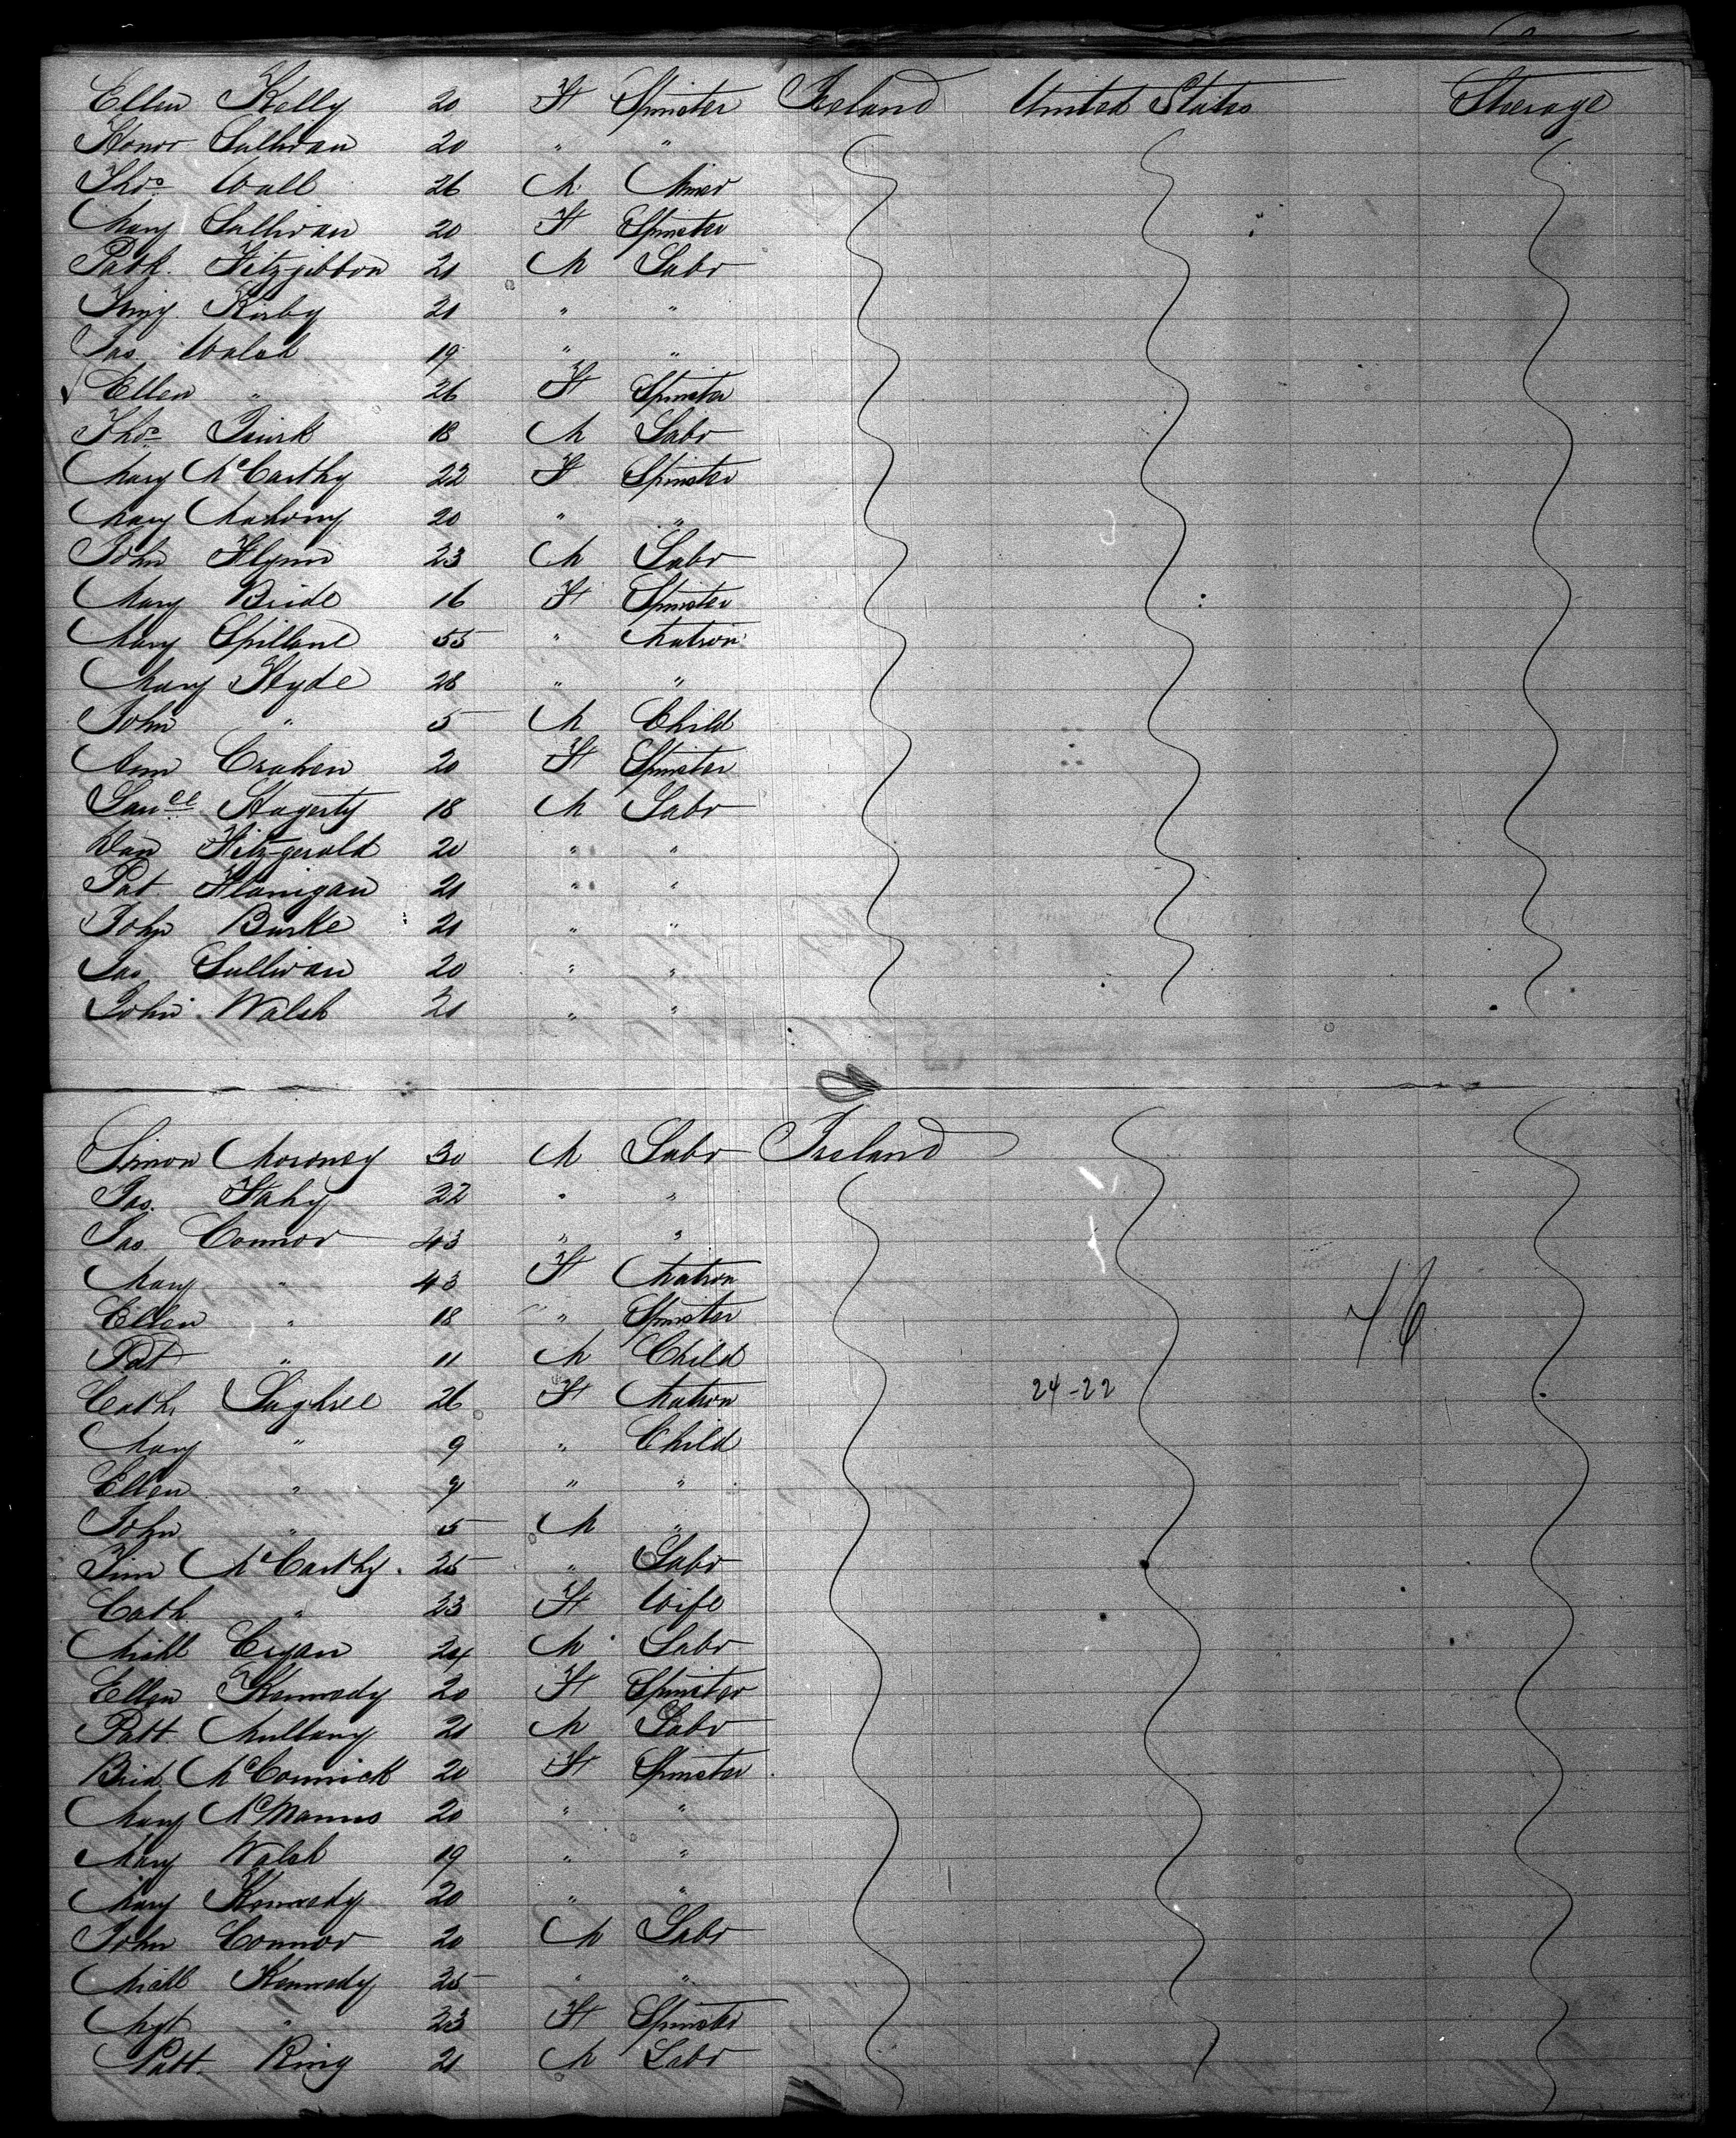 Ellen Kelly 20 F Spinster Ireland United States Steerage
Honor Sullivan 20 " "
Thos Wall 26 M Miner
Mary Sullivan 20 F Spinster
Patk. Fitzgibbon 21 M Labr
Kirby 21 " "
Jas. Walsh 19 " "
Ellen " 26 F Spinster
Thos Quirk 18 M Labr
Mary McCarthy 22 F Spinster
Mary Mahony 20 " "
John Flynn 23 M Labr
Mary Bride 16 F Spinster
Mary Spillane 55 " Matron
Mary Hyde 28 " "
John " 5 M Child
Ann Crahen 20 F Spinster
Hagerty 18 M Labr
Dan Fitzgerald 20 " "
Pat Flanigan 21 " "
John Burke 21 " "
Jas Sullivan 20 " "
John Walsh 21 " "
Simon Moroney 30 M Labr Ireland
Jas. Fahy 22 " "
Jas Connor 43 " "
Mary " 43 F Matron
Ellen " 18 " Spinster
Pat " 11 M Child
Cath. 26 F Matron 24-22
Mary " 9 " Child
Ellen " "  "
John " 5 M "
Tim McCarthy. 25 " Labr
Cath " 23 F Wife
Michl Cryan 24 M Labr
Ellen Kennedy 20 F Spinster
Patt Mullany 21 M Labr
Brid. McCormick 20 F Spinster
Mary McManus 20 " "
Mary Walsh 19 " "
Mary Kennedy 20 " "
John Connor 20 M Labr
Michl Kennedy 25 " "
Mgt " 23 F Spinster
Patt. Ring 21 M Labr